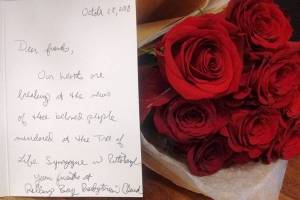 October 28, 2018
Dear friends,
Our hearts are
breaking at the news
of these beloved people
murdered at the Tree of
Life Synagogue in Pittsburgh
Your friends at
Presbyterian Church